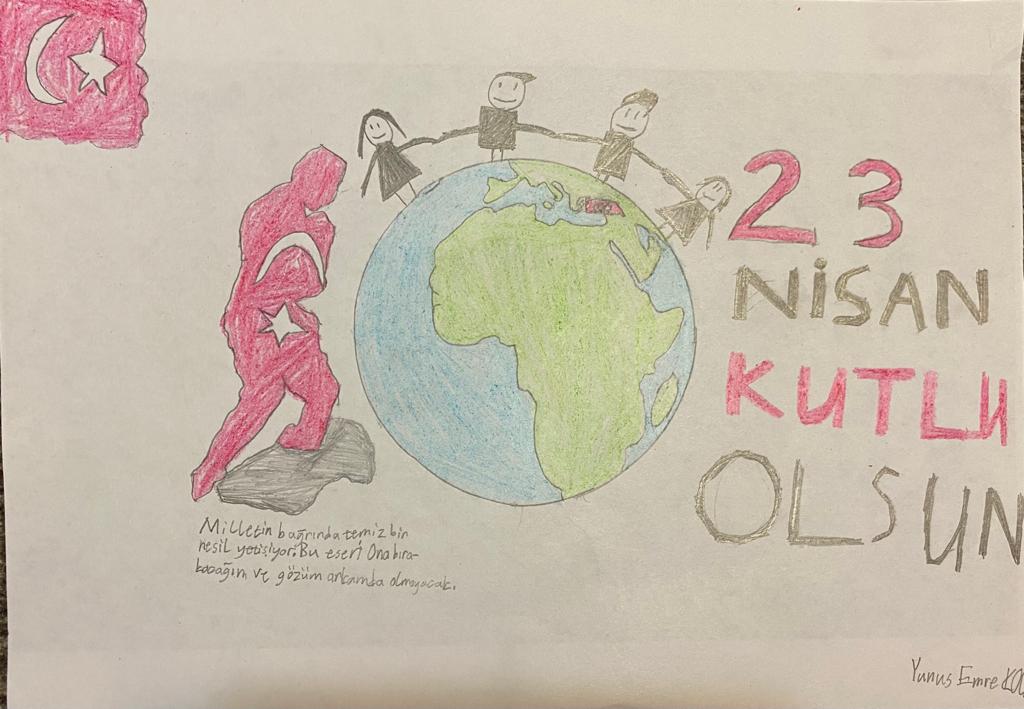 23
NiSAN
KUTLU
OLSUN
Milletin bağrında temiz bir
nesil yetişiyor. Bu eseri Ona bıra-
kacağım ve gözüm arkamda olmayacak.
Yunus Emre